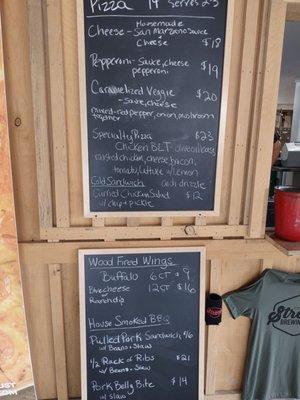 Pizza 14" Serves 2-3
Homemade
Cheese - San Marzano sauce
+ Cheese $18
Pepperoni - Sauce, cheese
pepperoni $19
Caramelized Veggie $20
- Sauce, cheese
mixed red pepper, onion, mushroom
together
Specialty Pizza $23
Chicken BLT -
roasted chicken, cheese, bacon,
tomato, lettuce w/ lemon
drizzle
Cold Sandwich
Curried Chicken Salad $12
w/ chip + pickle
Wood Fired Wings
Buffalo 6 ct $9
Blue cheese 12 ct $16
or
Ranch dip
House Smoked BBQ
Pulled Pork Sandwich $16
w/ Beans + Slaw
1/2 Rack of Ribs $21
w/ Beans + Slaw
Pork Belly Bite $14
w/ slaw
BREWING
JUST